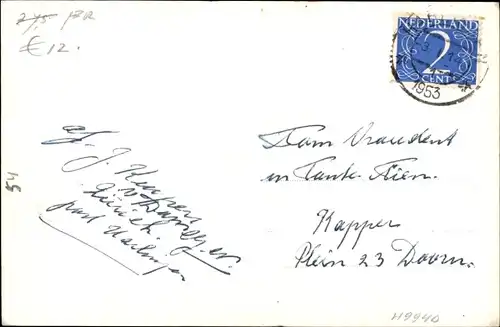 275 BR
€ 12.
NEDERLAND
2
CENT
1953
54
af. J. Kuyper
Zürich
post Harlingen
Fam Vraudent
en Tante Fien.
Kapper
Plein 23 Doorn.
H9940